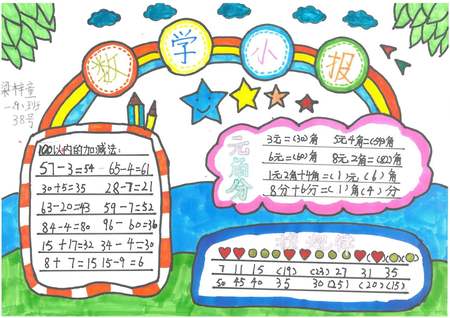 数学小报
梁梓童
38号
100以内的加减法:
57-3=54 65-4=61
30+5=35 28-7=21
63-20=43 59-7=52
84-4=80 96-60=36
15+17=32 34-4=30
8+7=15 15-9=6
元角分
3元=(30)角 5元4角=(54)角
6元=(60)角 8元2角=(82)角
1元2角+4角=(1)元(6)角
8分+6分=(1)角(4)分
找规律
7 11 15 (19) (23) 27 31 35
50 45 40 35 30 (25) (20) (15)